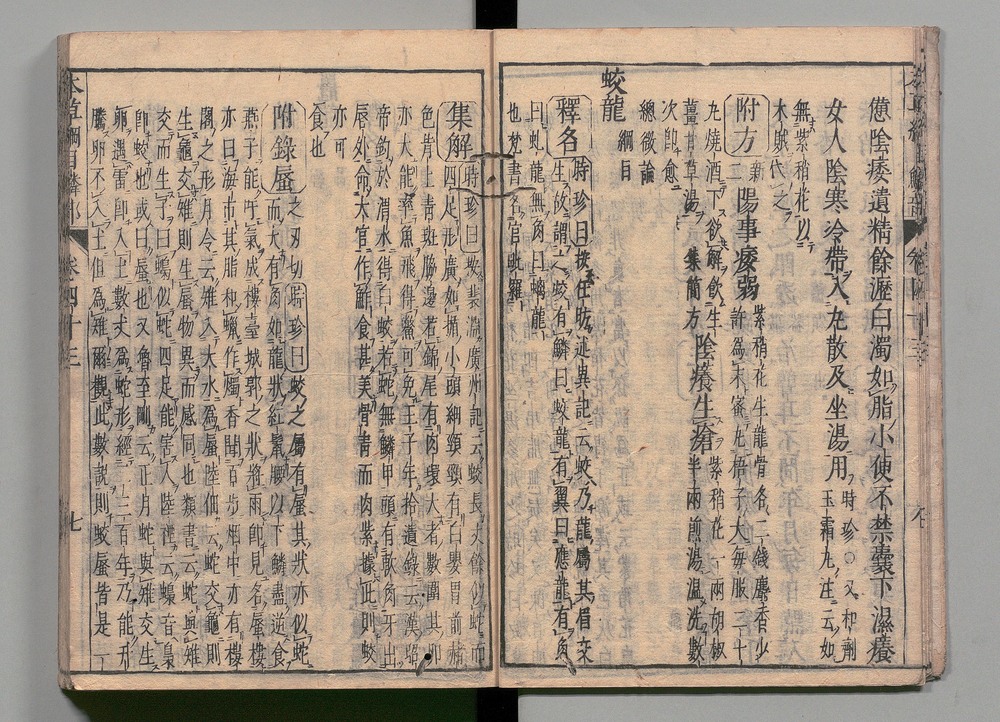 憊陰痿遺精餘瀝白濁如脂小便不禁囊下濕癢
女人陰寒冷帶入丸散及坐湯用時珍○又和劑
玉霜丸注云如
無紫稍花以
木賊代之
附方新二陽事痿弱紫稍花生龍骨各二錢麝香少
許為末蜜丸梧子大每服二十
九燒酒下欲解飲生
薑甘草湯集簡方陰癢生瘡紫稍花一兩胡椒
半兩煎湯溫洗數
次即愈
總微論
綱目
蛟龍
釋名時珍曰按任昉述異記云蛟乃龍屬其眉交
生故謂之蛟有鱗曰蛟龍有翼曰應龍有角
曰虬龍無角曰螭龍
也梵書名官毗羅
集解時珍曰按裴淵廣州記云蛟長丈餘似蛇而
四足形廣如楯小頭細頸頸有白嬰胷前赭
色背上青斑脇邊若錦尾有肉環大者數圍其卵
亦大能率魚飛得鱉可免王子年拾遺錄云漢昭
帝釣於渭水得白蛟若蛇無鱗甲頭有軟角牙出
唇外命大官作鮓食甚美骨青而肉紫據此則蛟
亦可
食也
附錄蜃之刃切時珍曰蛟之屬有蜃其狀亦似蛇
而大有角如龍狀紅鬣腰以下鱗盡逆食
燕子能吁氣成樓臺城郭之狀將雨即見名蜃樓
亦曰海市其脂和蠟作燭香聞百步烟中亦有樓
閣之形月令云雉入大水為蜃陸佃云蛇交龜則
生龜交雉則生蜃物異而感同也類書云蛇與雉
交而生子曰蟂似蛇四足能害人陸禋云蟂音梟
即蛟也或曰蜃也又魯至剛云正月蛇與雉交生
卵遇雷即入土數丈為蛇形經二三百年乃能升
騰卵不入土但為雉爾觀此數說則蛟蜃皆是一
本草綱目鱗部 卷四十三 七